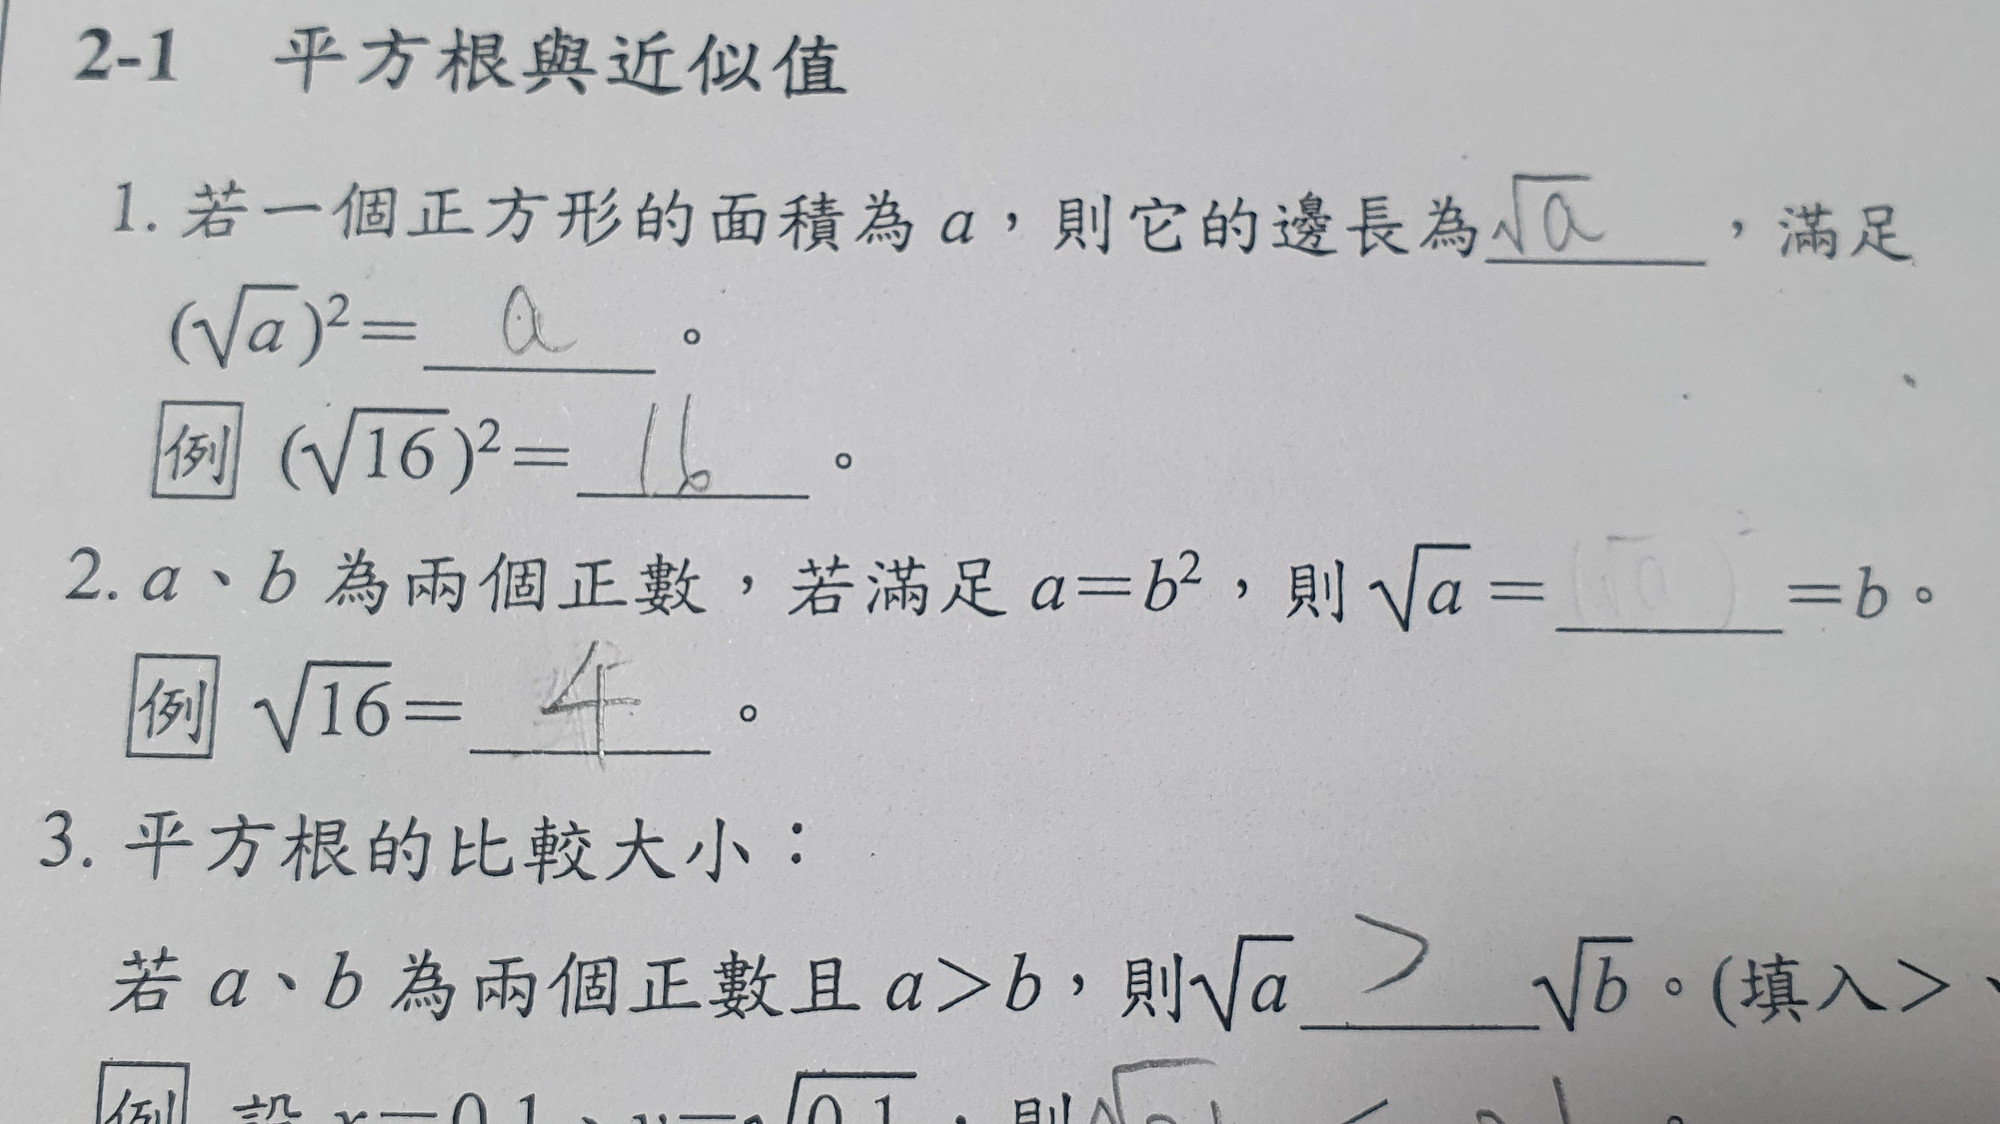 2-1 平方根與近似值
1. 若一個正方形的面積為 a，則它的邊長為√a，滿足
(√a)²=a。
例 (√16)²=16。
2. a、b 為兩個正數，若滿足 a=b²，則 √a=____=b。
例 √16=4。
3. 平方根的比較大小：
若 a、b 為兩個正數且 a>b，則√a > √b。(填入>、
例